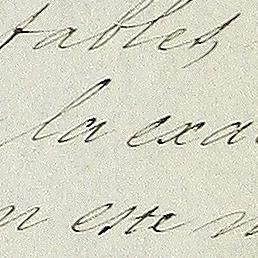 tables,
la exa
n este n